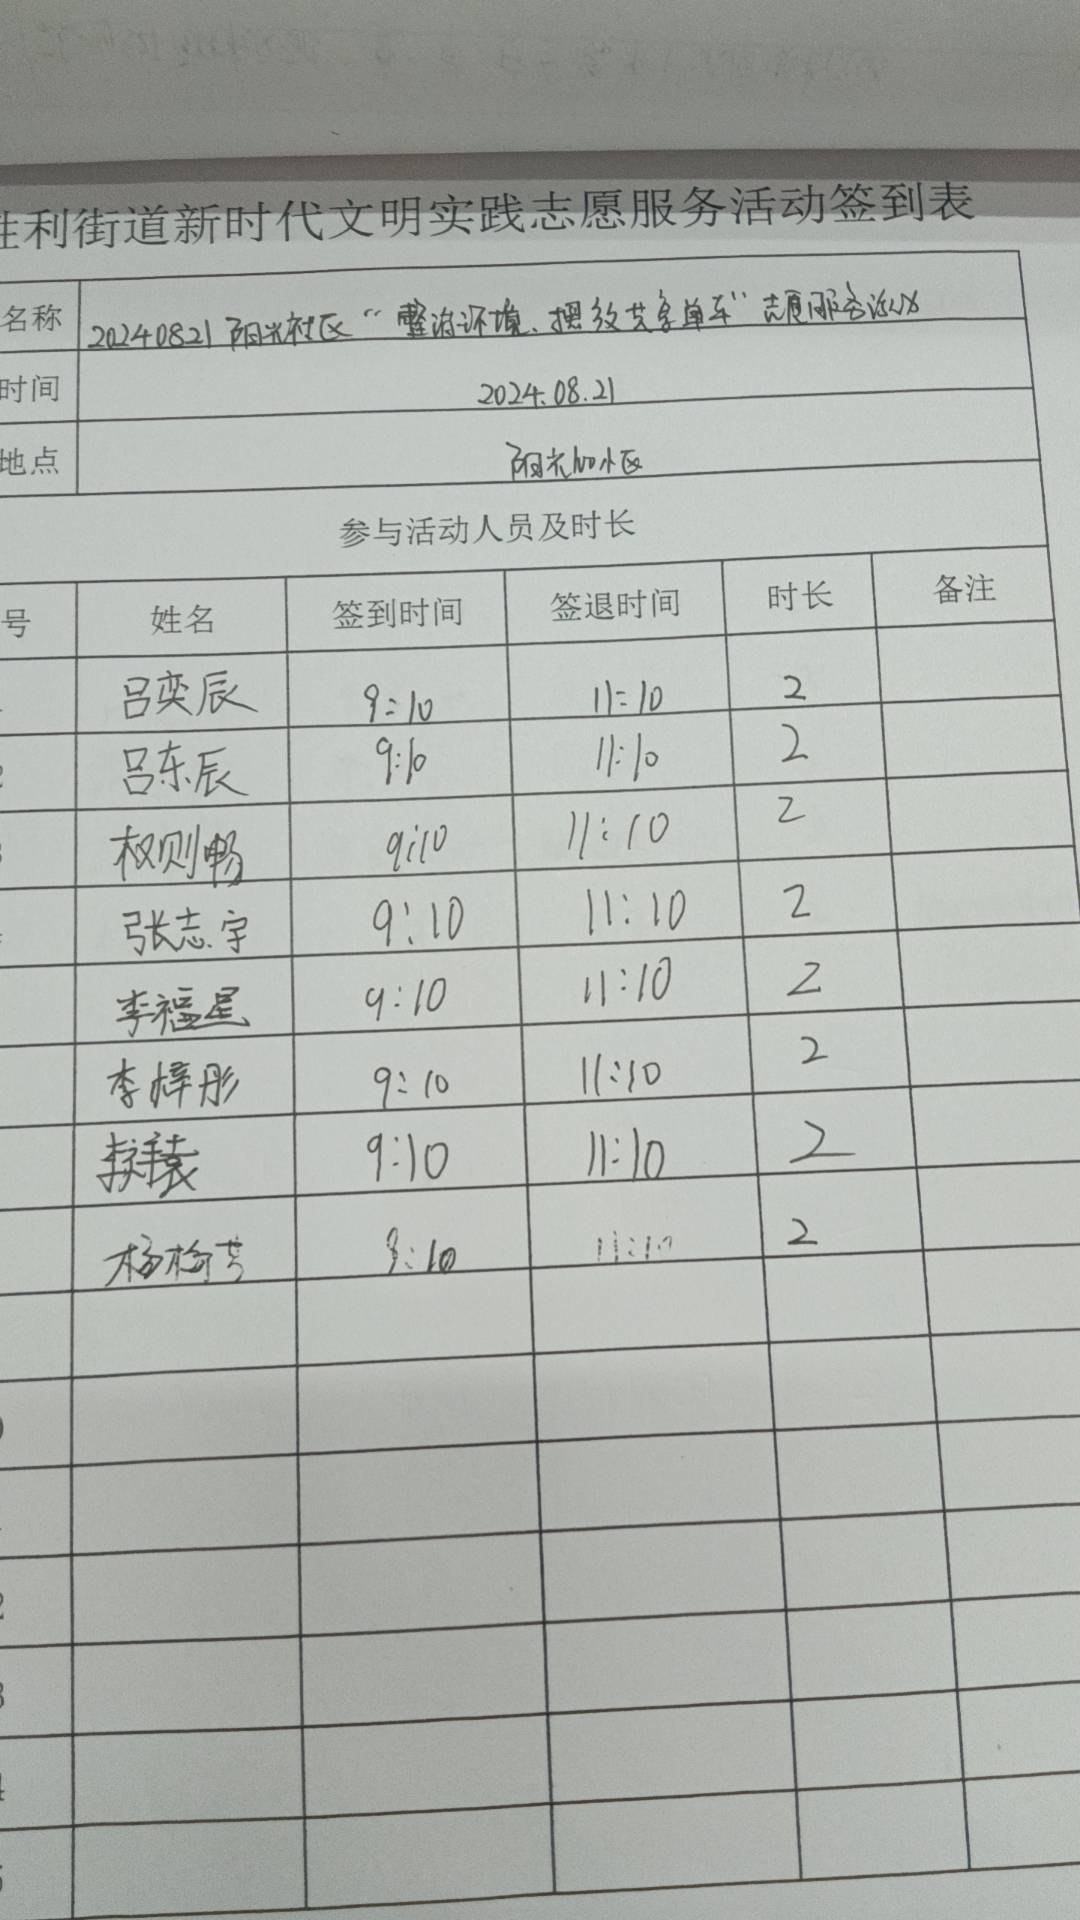 胜利街道新时代文明实践志愿服务活动签到表
名称 20240821 阳光社区“整治环境、摆放共享单车”志愿服务活动
时间 2024.08.21
地点 阳光100小区
参与活动人员及时长
号 姓名 签到时间 签退时间 时长 备注
吕奕辰 9:10 11:10 2
2 吕东辰 9:10 11:10 2
3 权则畅 9:10 11:10 2
张志宇 9:10 11:10 2
李福星 9:10 11:10 2
李梓彤 9:10 11:10 2
9:10 11:10 2
9:10 11:10 2
2
3
4
5